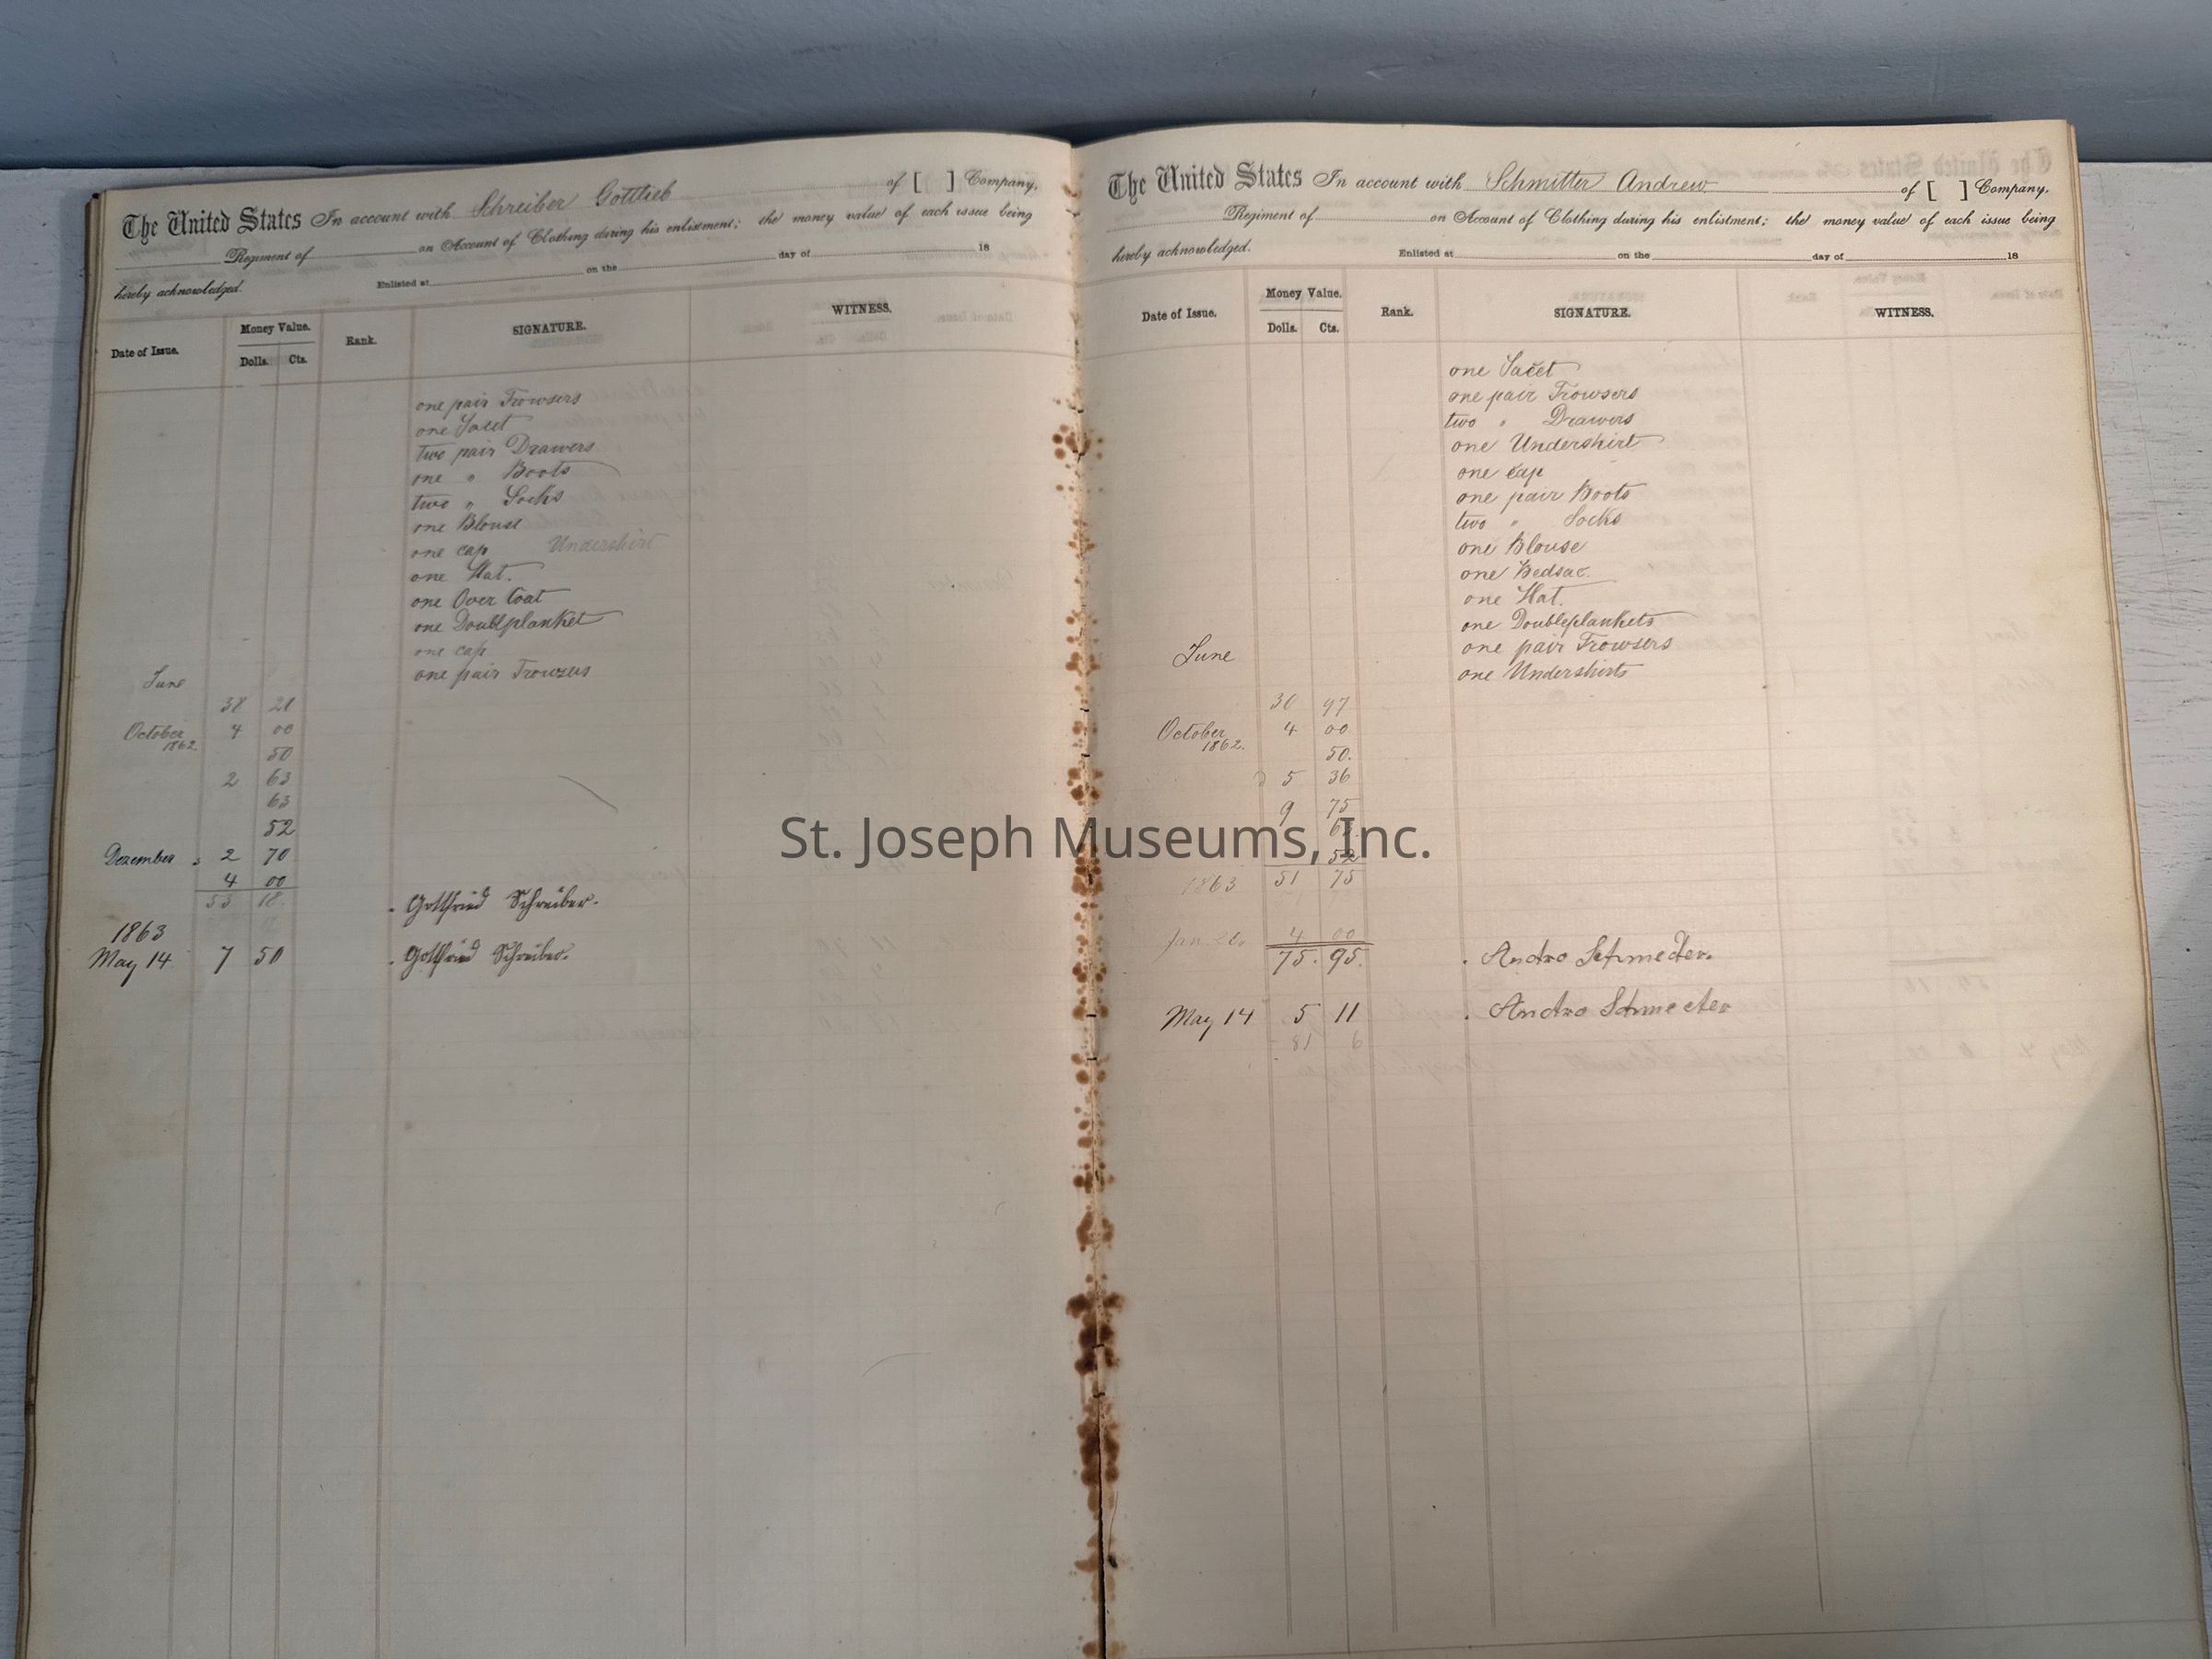 The United States In account with Schreiber Gottlieb of [ ] Company,
Regiment of on Account of Clothing during his enlistment; the money value of each issue being
hereby acknowledged. Enlisted at on the day of 18
Date of Issue. Money Value. Dolls. Cts. Rank. SIGNATURE. WITNESS.
one pair Trowsers
one Jacet
two pair Drawers
one " Boots
two " Socks
one Blouse
one cap Undershirt
one Hat.
one Over Coat
one Doublplanket
one cap
June one pair Trowsers
38 21
October 4 00
1862. 50
2 63
63
52
Dezember 2 70
4 00
53 18
Gottfried Schreiber.
1863
May 14 7 50 Gottfried Schreiber.
The United States In account with Schmitter Andrew of [ ] Company,
Regiment of on Account of Clothing during his enlistment; the money value of each issue being
hereby acknowledged. Enlisted at on the day of 18
Date of Issue. Money Value. Dolls. Cts. Rank. SIGNATURE. WITNESS.
one Jacet
one pair Trowsers
two " Drawers
one Undershirt
one cap
one pair Boots
two " Socks
one Blouse
one Bedsac.
one Hat.
one Doubleplankets
June one pair Trowsers
one Undershirts
30 97
October 4 00
1862. 50.
5 36
9 75
52
1863 51 75
Jan. 4 00
75. 95. Andro Schmeder.
May 14 5 11 Andro Schmeeter
81 6
St. Joseph Museums, Inc.